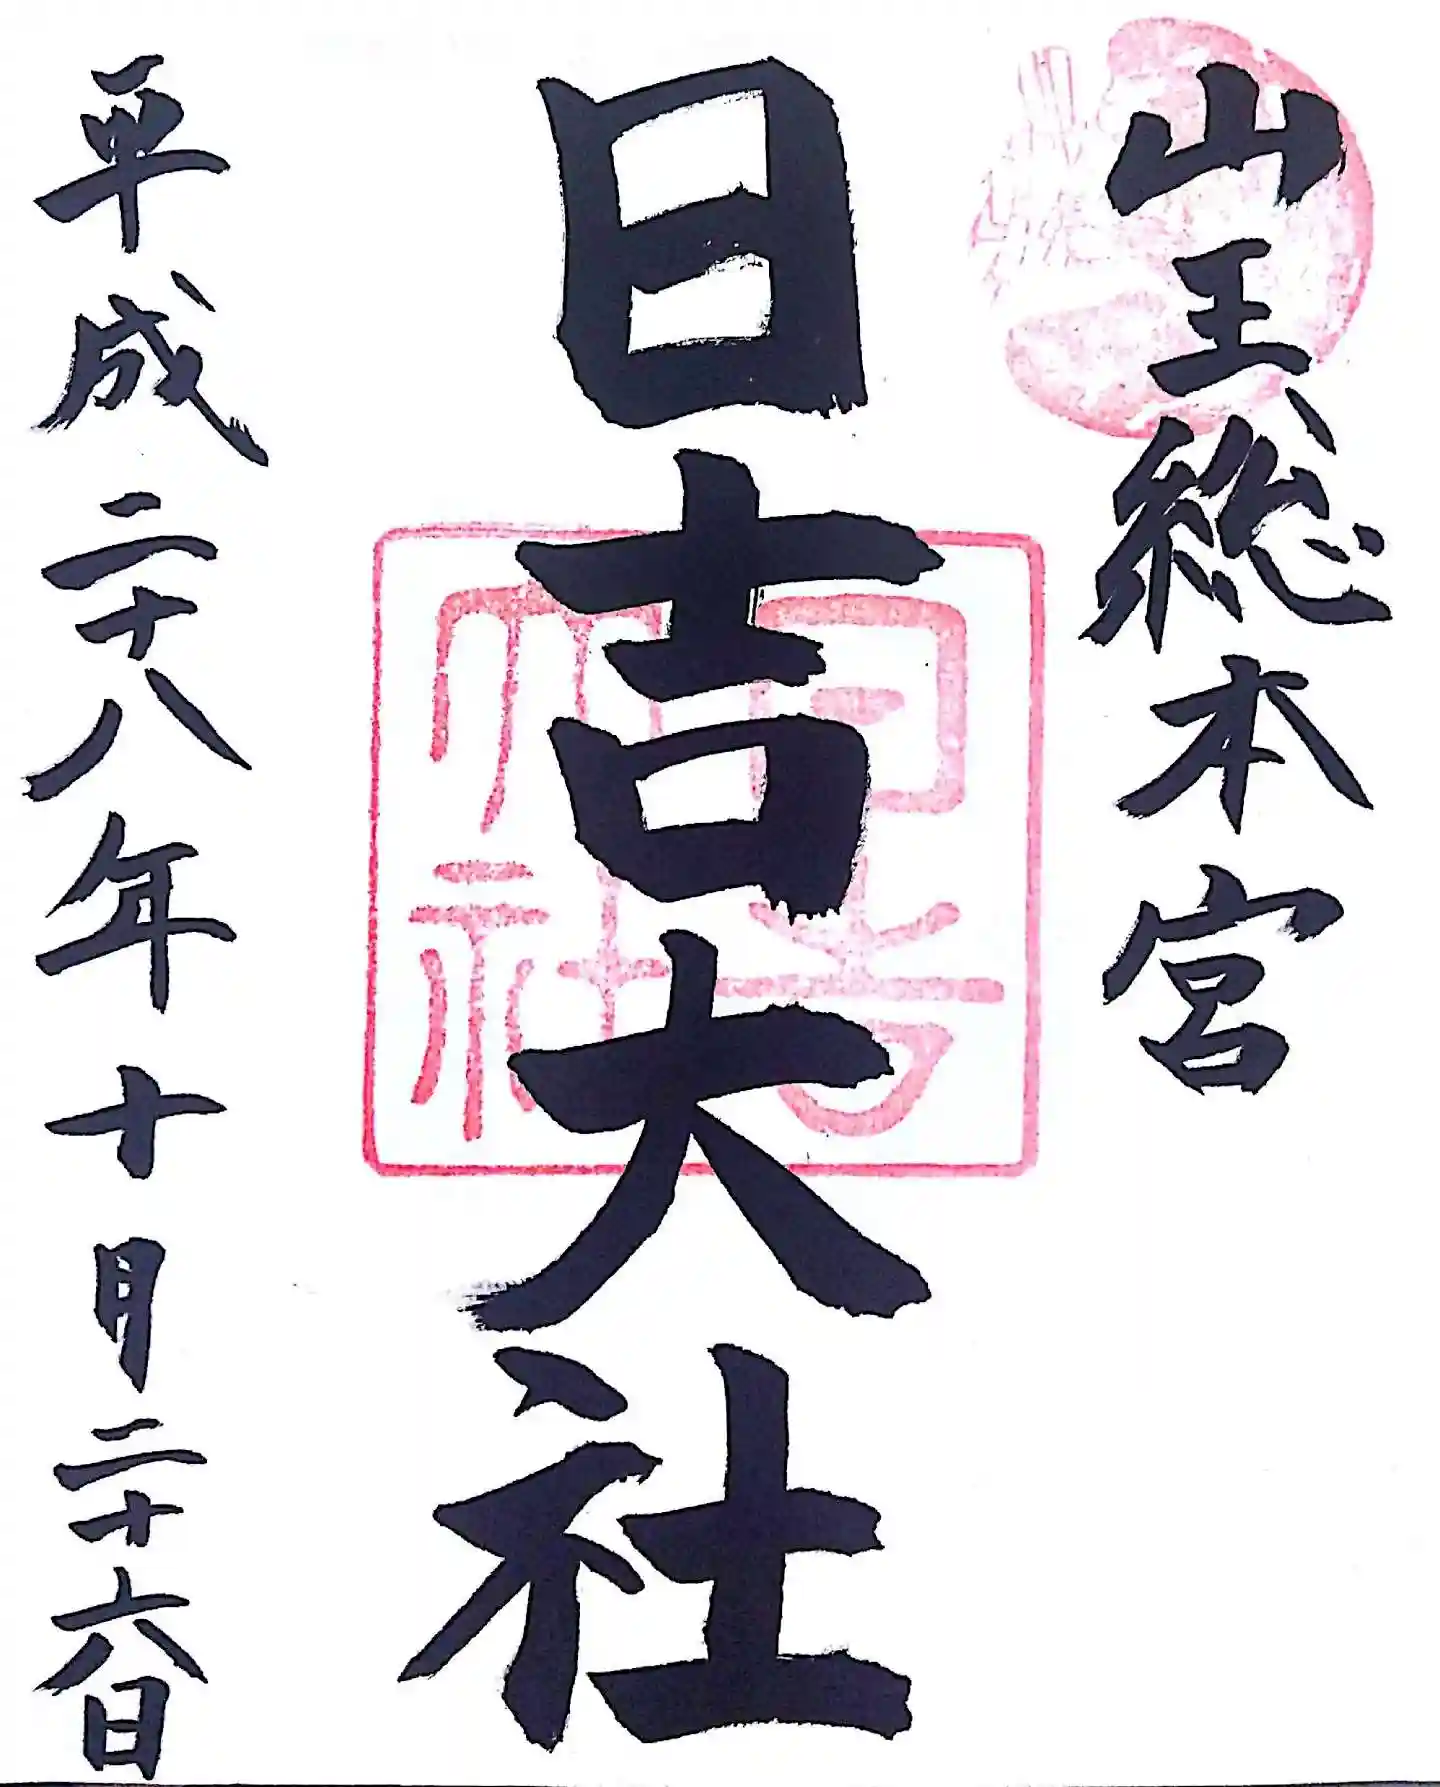 山王総本宮
日吉大社
日吉大社
平成二十八年十月二十六日